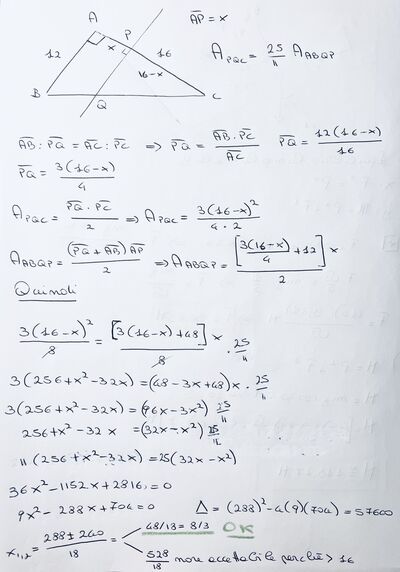 A
AP = x
12
x
P
16
16-x
B
Q
C
A_PQC = 25/11 A_ABQP
AB : PQ = AC : PC ⇒ PQ = AB·PC/AC PQ = 12(16-x)/16
PQ = 3(16-x)/4
A_PQC = PQ·PC/2 ⇒ A_PQC = 3(16-x)²/4·2
A_ABQP = (PQ+AB)AP/2 ⇒ A_ABQP = [3(16-x)/4 + 12]x/2
Quindi
3(16-x)²/8 = [3(16-x)+48]x/8 · 25/11
3(256+x²-32x) = (48-3x+48)x · 25/11
3(256+x²-32x) = (96x-3x²) 25/11
256+x²-32x = (32x-x²) 25/11
11(256+x²-32x) = 25(32x-x²)
36x²-1152x+2816 = 0
9x²-288x+704 = 0 Δ = (288)²-4(9)(704) = 57600
x₁,₂ = 288±240/18 = 48/18 = 8/3 OK
528/18 non accettabile perché > 16